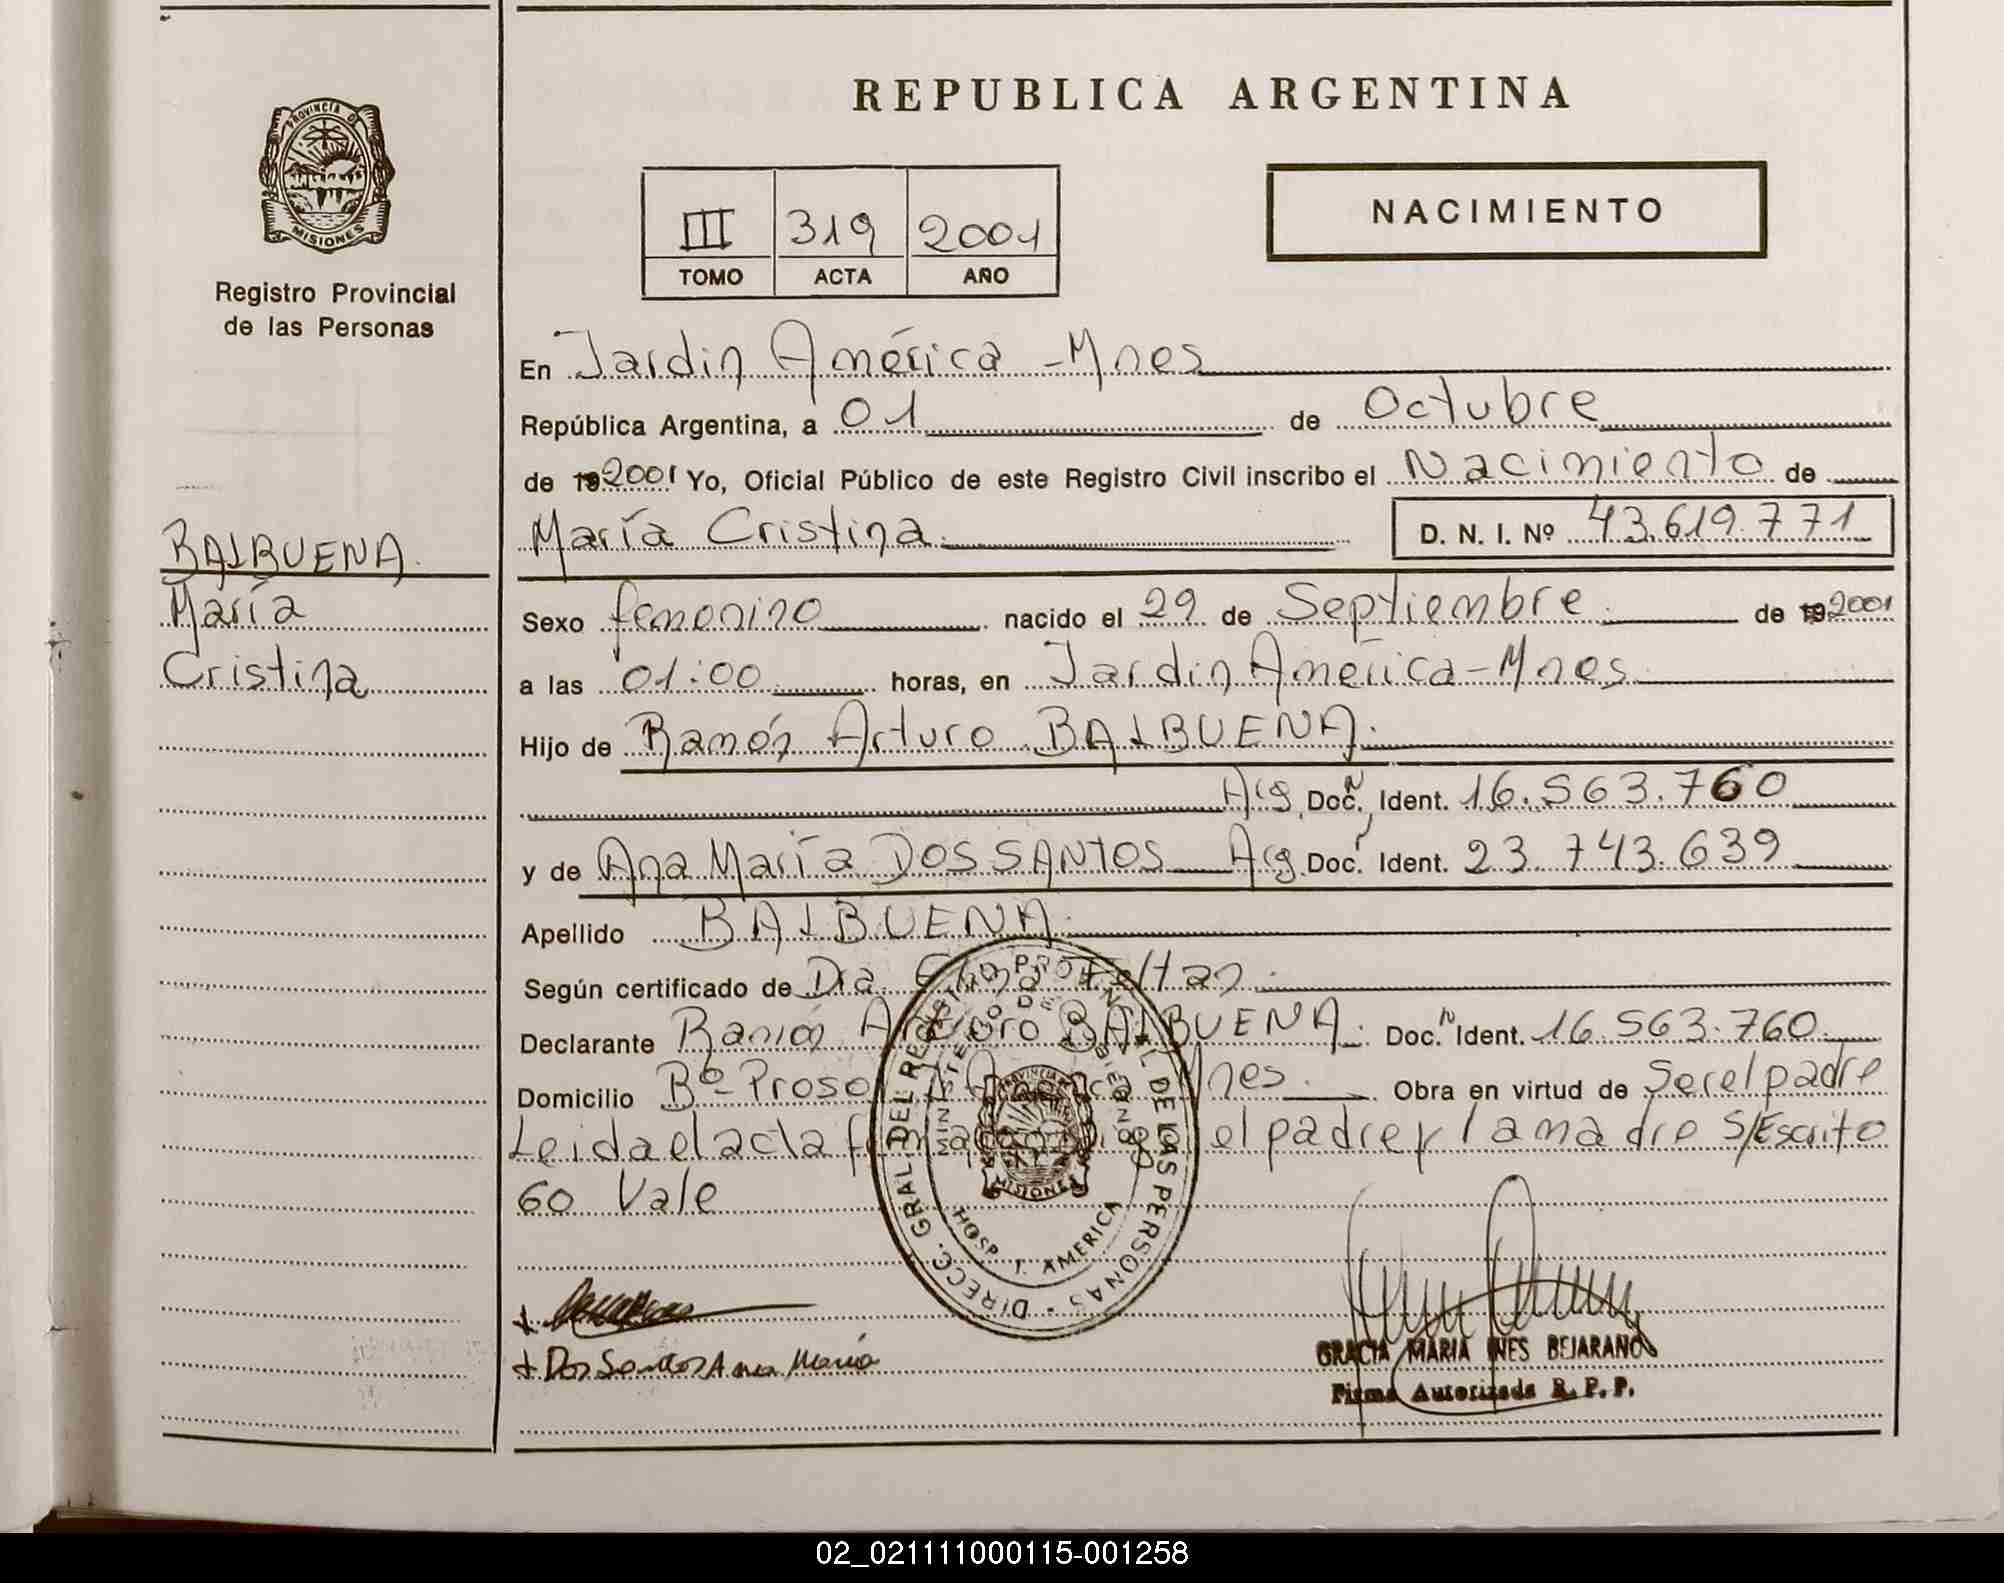 REPUBLICA ARGENTINA
PROVINCIA DE
MISIONES
Registro Provincial
de las Personas
III 319 2001
TOMO ACTA AÑO
NACIMIENTO
En Jardin América - Mnes
República Argentina, a 01 de Octubre
de 192001 Yo, Oficial Público de este Registro Civil inscribo el Nacimiento de
María Cristina. D. N. I. Nº 43.619.771
BALBUENA.
María
Cristina
Sexo femenino nacido el 29 de Septiembre. de 192001
a las 01:00 horas, en Jardin América - Mnes.
Hijo de Ramón Arturo BALBUENA.
Arg. Doc. N Ident. 16.563.760
y de Ana María DOS SANTOS Arg. Doc. Ident. 23.743.639
Apellido BALBUENA.
Según certificado de Dra.
Declarante Ramón Arturo BALBUENA. Doc. N Ident. 16.563.760.
Domicilio Bº Prosol J. América Mnes. Obra en virtud de Ser el padre
Leida el acta el padre y la madre S/Escrito
60 Vale
DIRECC. GRAL DEL REGISTRO PROVINCIAL DE LAS PERSONAS
MINISTERIO DE GOBIERNO
PROVINCIA DE
MISIONES
HOSP. J. AMERICA
+ Dos Santos Ana María
GRACIA MARIA INES BEJARANO
Firma Autorizada R. P. P.
02_021111000115-001258